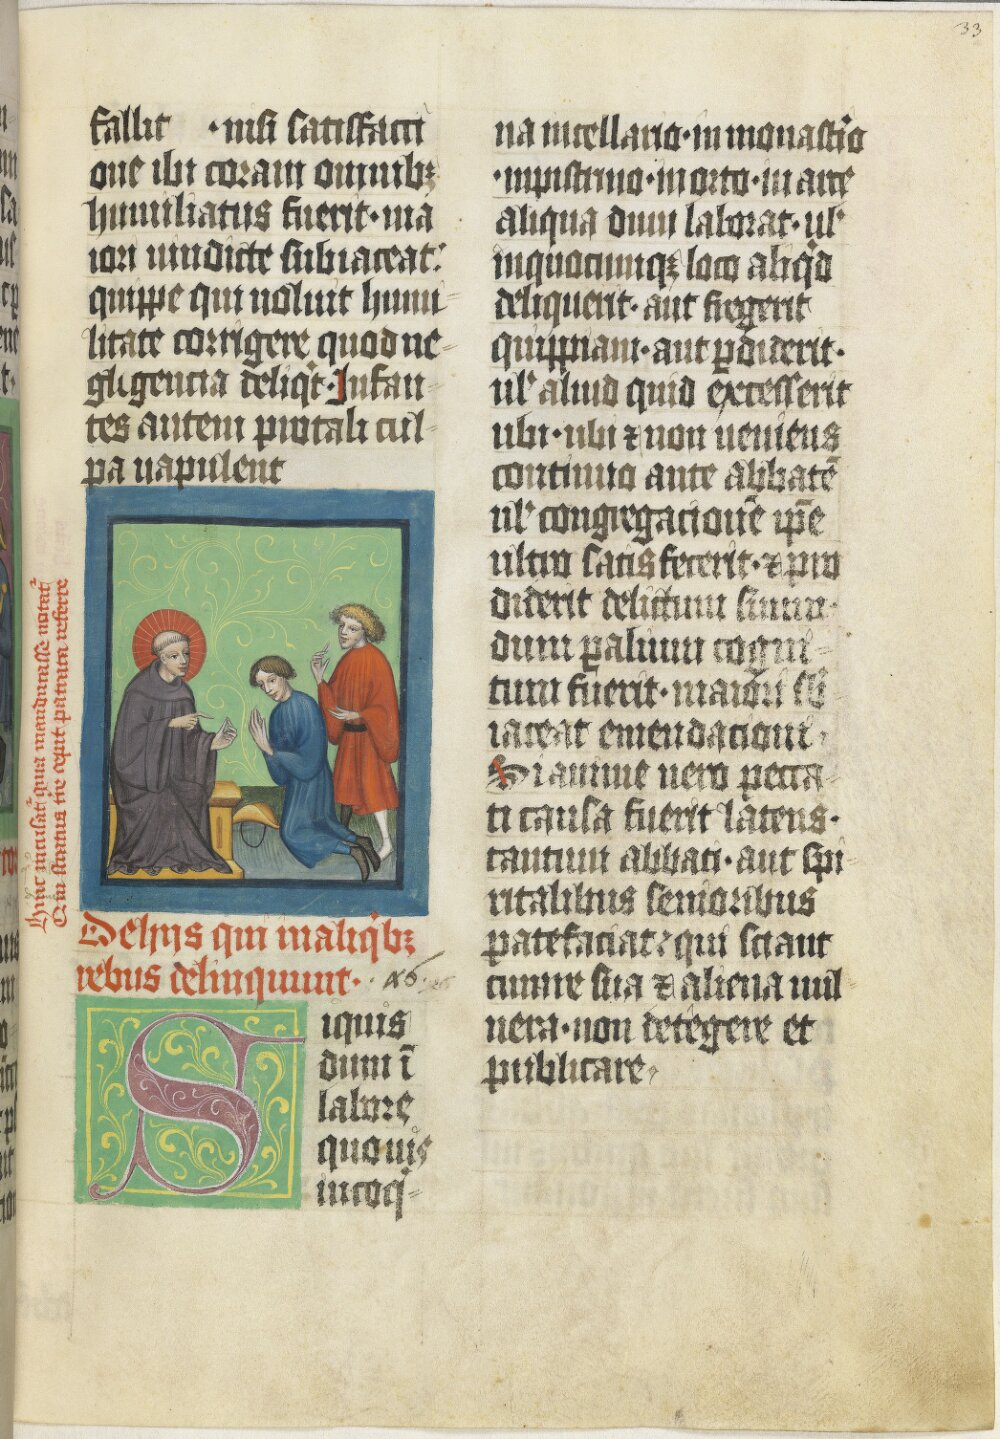 33
fallit · nisi satisfacti
one ibi coram omnibꝫ
humiliatus fuerit · ma
iori uindicte subiaceat:
quippe qui noluit humi
litate corrigere quod ne
gligencia deliqͥt · Infan
tes autem pro tali cul
pa uapulent
De hijs qui in aliqͥbꝫ
rebus delinquunt · 46 ·
Siquis
dum ī
labore
quouis
in coqͥ
na in cellario · in monastͥo
· in pistrino · in orto · in arte
aliqua dum laborat · ul'
in quocumqꝫ loco aliqͥd
deliquerit · aut fregerit
quippiam · aut ꝑdiderit ·
ul' aliud quid excesserit
ubi · ubi ⁊ non ueniens
continuo ante abbatē
ul' congregacionē ip̄e
ultro satisfecerit · ⁊ pro
diderit delictum suum ·
dum ꝑ alium cogni
tum fuerit · maiori sb̄
iaceat emendacioni ·
Si anime uero pecca
ti causa fuerit latens ·
tantum abbati · aut spi
ritalibus senioribus
patefaciat : qui sciant
curare sua ⁊ aliena uul
nera · non detegere et
publicare ·